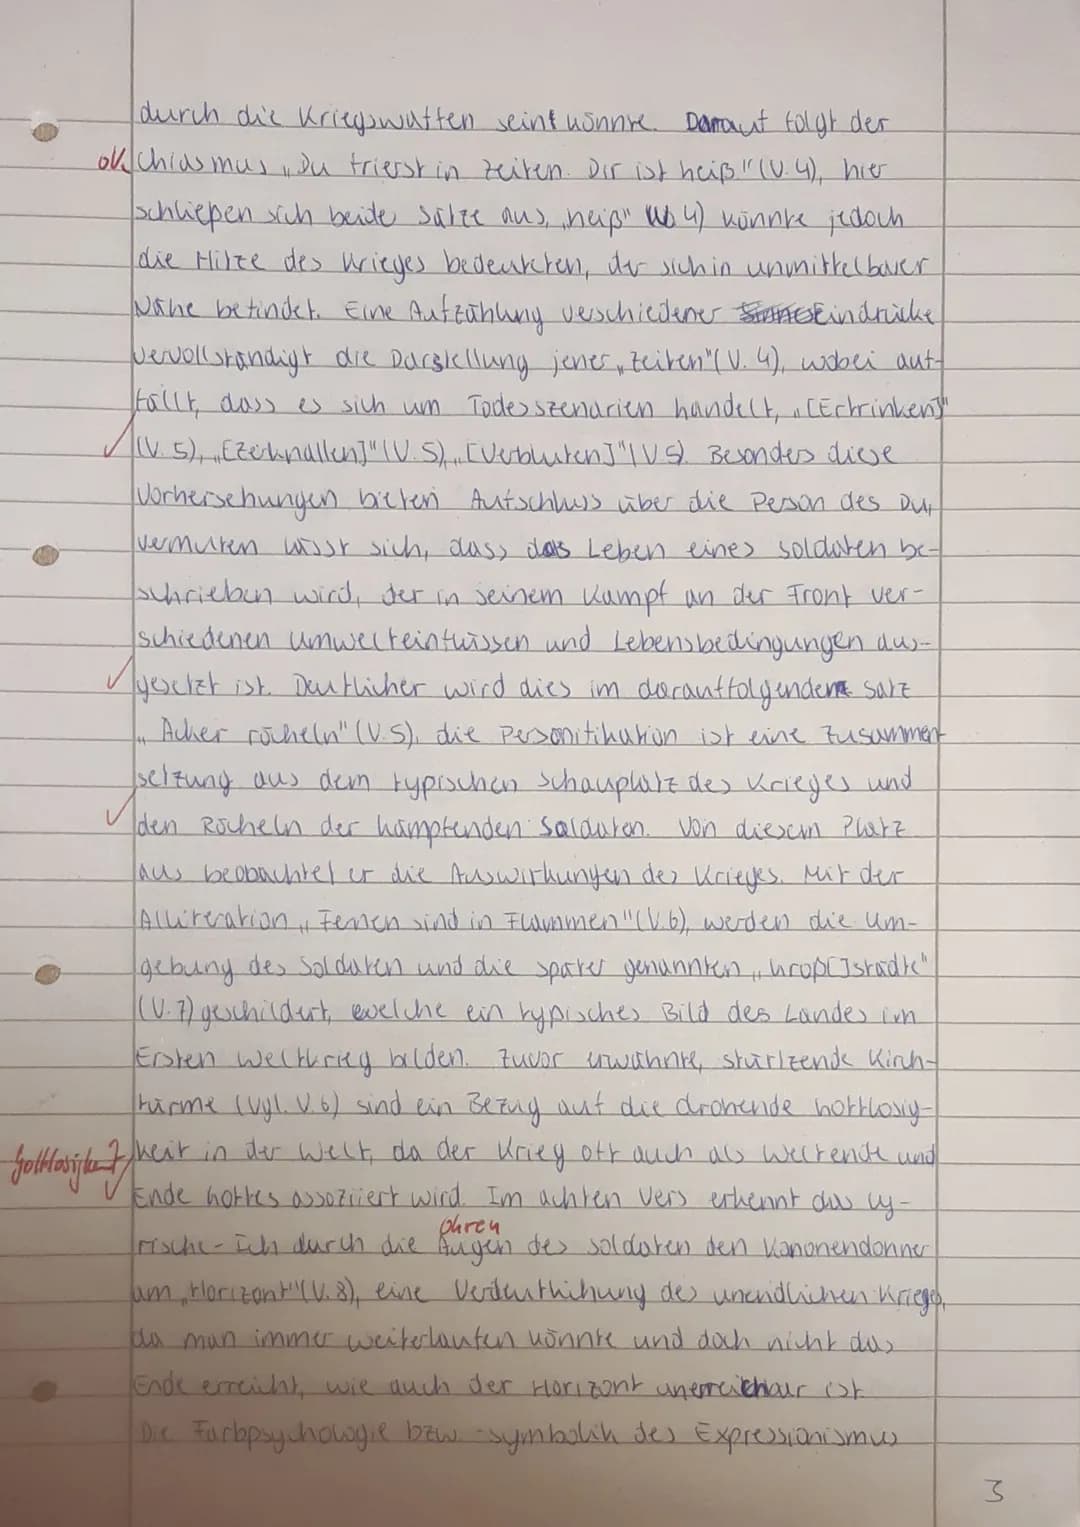 durch die Kriegswaffen sein könnte. Darauf folgt der
ok Chiasmus „Du frierst in Zeiten. Dir ist heiß" (V. 4), hier
schließen sich beide Sätze aus, „heiß" 4) könnte jedoch
die Hitze des Krieges bedeuteten, der sich in unmittelbarer
Nähe befindet. Eine Aufzählung verschiedener Eindrücke
vervollständigt die Darstellung jener „Zeiten" (V. 4), wobei auf-
fällt, dass es sich um Todesszenarien handelt, „[Ertrinken]"
(V. 5), „[Zerknallen]" (V. 5), „[Verbluten]" (V.5). Besonders diese
Vorhersehungen bieten Aufschluss über die Person des Du,
vermuten lässt sich, dass das Leben eines Soldaten be-
schrieben wird, der in seinem Kampf an der Front ver-
schiedenen Umwelteinflüssen und Lebensbedingungen aus-
gesetzt ist. Deutlicher wird dies im darauffolgenden Satz
„Äcker röcheln" (V.5), die Personifikation ist eine Zusammen-
setzung aus dem typischen Schauplatz des Krieges und
den Röcheln der kämpfenden Soldaten. Von diesem Platz
aus beobachtet er die Auswirkungen des Krieges. Mit der
Alliteration „Fernen sind in Flammen" (V.6), werden die Um-
gebung des Soldaten und die später genannten „Groß[]städte"
(V. 7) geschildert, welche ein typisches Bild des Landes im
Ersten Weltkrieg bilden. Zuvor erwähnte, stürtzende Kirch-
türme (Vgl. V. 6) sind ein Bezug auf die drohende Gottlosig-
Gottlosigkeit? keit in der Welt, da der Krieg oft auch als Weltende und
Ende Gottes assoziiert wird. Im achten Vers erkennt das ly-
Ohren
rische-Ich durch die Augen des Soldaten den Kanonendonner
am „Horizont" (V. 8), eine Verdeutlichung des unendlichen Krieges,
da man immer weiterlaufen könnte und doch nicht das
Ende erreicht, wie auch der Horizont unerreichbar ist.
Die Farbpsychologie bzw -symbolik des Expressionismus
3